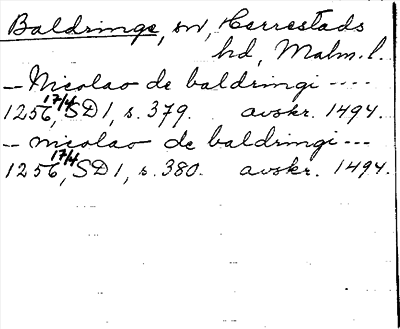 Baldringe, sn, Herrestads
hd, Malm. l.
— Nicolao de baldringi ----
1256 17/4, SD 1, s. 379. avskr. 1494.
— nicolao de baldringi ---
1256 17/4, SD 1, s. 380. avskr. 1494.